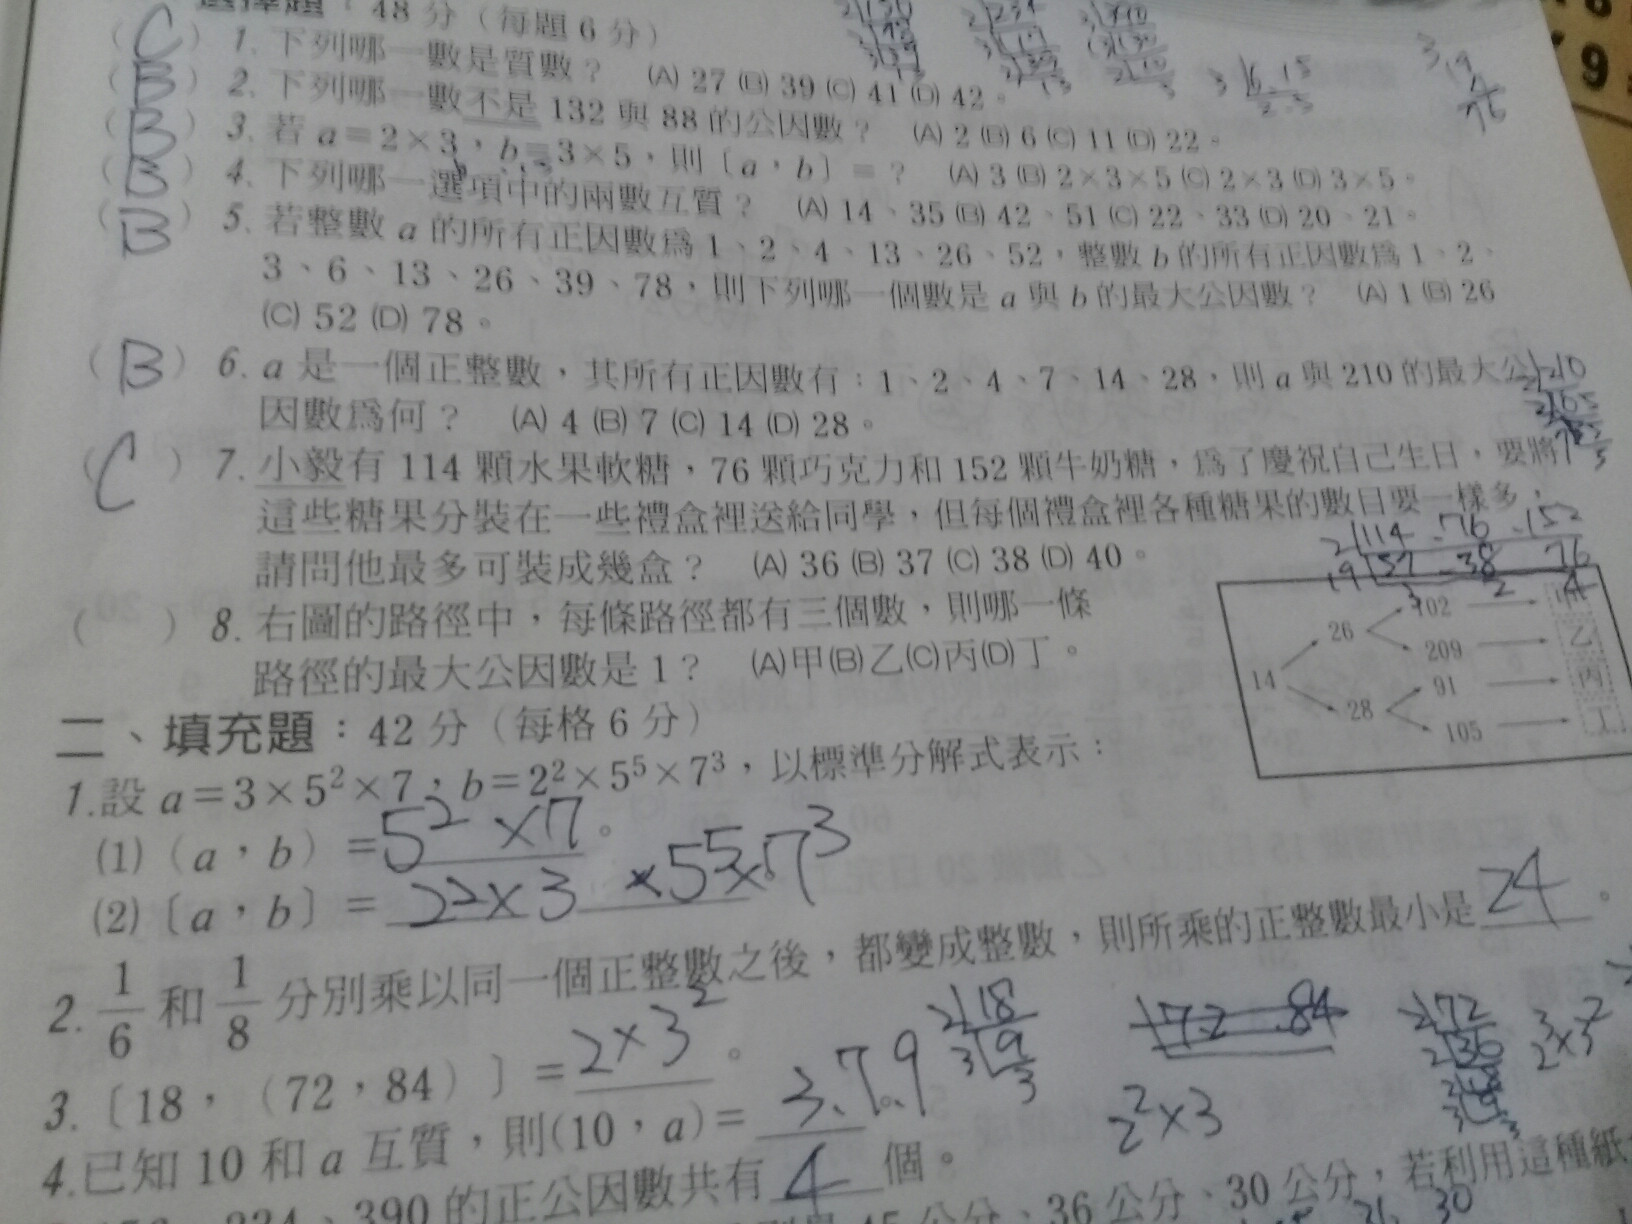 選擇題：48分（每題6分）
（C）1. 下列哪一數是質數？ (A) 27 (B) 39 (C) 41 (D) 42。
（B）2. 下列哪一數不是 132 與 88 的公因數？ (A) 2 (B) 6 (C) 11 (D) 22。
（B）3. 若 a＝2×3，b＝3×5，則〔a，b〕＝？ (A) 3 (B) 2×3×5 (C) 2×3 (D) 3×5。
（B）4. 下列哪一選項中的兩數互質？ (A) 14、35 (B) 42、51 (C) 22、33 (D) 20、21。
（B）5. 若整數 a 的所有正因數為 1、2、4、13、26、52，整數 b 的所有正因數為 1、2、
3、6、13、26、39、78，則下列哪一個數是 a 與 b 的最大公因數？ (A) 1 (B) 26
(C) 52 (D) 78。
（B）6. a 是一個正整數，其所有正因數有：1、2、4、7、14、28，則 a 與 210 的最大公
因數為何？ (A) 4 (B) 7 (C) 14 (D) 28。
（C）7. 小毅有 114 顆水果軟糖，76 顆巧克力和 152 顆牛奶糖，為了慶祝自己生日，要將
這些糖果分裝在一些禮盒裡送給同學，但每個禮盒裡各種糖果的數目要一樣多，
請問他最多可裝成幾盒？ (A) 36 (B) 37 (C) 38 (D) 40。
2 114 76 152
19 57 38 76
3 2 4
（ ）8. 右圖的路徑中，每條路徑都有三個數，則哪一條
路徑的最大公因數是 1？ (A)甲(B)乙(C)丙(D)丁。
102
26
209 乙
14 91 丙
28
105 丁
二、填充題：42分（每格6分）
1.設 a＝3×5²×7，b＝2²×5⁵×7³，以標準分解式表示：
(1)（a，b）＝5²×7。
(2)〔a，b〕＝2²×3×5⁵×7³
2. 1/6 和 1/8 分別乘以同一個正整數之後，都變成整數，則所乘的正整數最小是24。
3.〔18，（72，84）〕＝2×3²。
2 18
3 9
3
72 84
2²×3
2 72
2 36
4.已知 10 和 a 互質，則(10，a)＝3.7.9
234、390 的正公因數共有4個。
45 公分、36 公分、30 公分，若利用這種紙